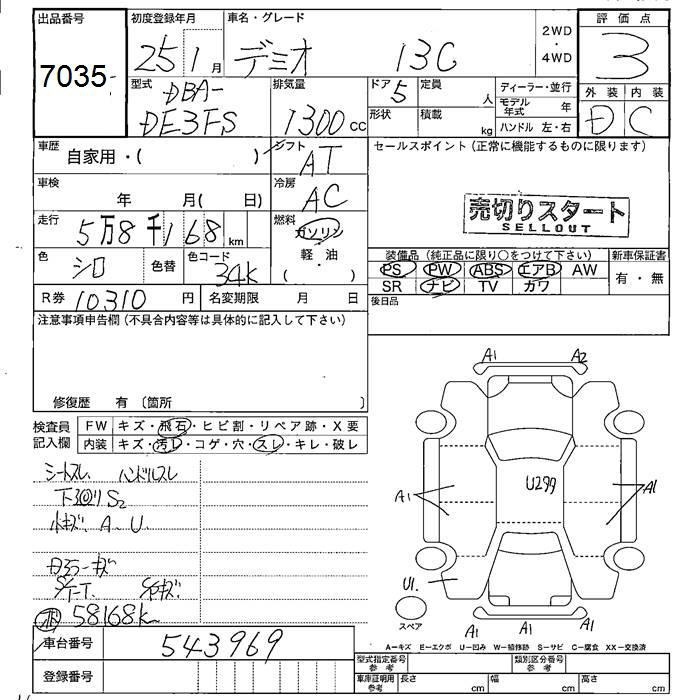 出品番号 初度登録年月 車名・グレード 2WD・4WD 評価点
7035 25 1月 デミオ 13C 3
型式 排気量 ドア 定員 ディーラー・並行 外装 内装
DBA- 5 人 モデル年式 年
DE3FS 1300cc 形状 積載 kg ハンドル 左・右 D C
車歴 自家用・( ) シフト AT セールスポイント(正常に機能するものに限ります)
車検 年 月( 日) 冷房 AC
売切りスタート
SELLOUT
走行 5万8千168km 燃料 ガソリン
軽・油
( ・ )
装備品(純正品に限り○をつけて下さい) 新車保証書
色 シロ 色替 色コード 34K
PS PW ABS エアB AW 有・無
SR ナビ TV カワ
R券 10310円 名変期限 月 日 後日品
注意事項申告欄(不具合内容等は具体的に記入して下さい)
修復歴 有 〔箇所 〕
A1 A2
検査員記入欄 FW キズ・飛石・ヒビ割・リペア跡・X要
内装 キズ・汚レ・コゲ・穴・スレ・キレ・破レ
シートスレ ハンドルスレ
下回りS2
小キズ.A.U.
U299
A1 A1
U1.
58168km
スペア A1 A1 A1
車台番号 543969
A−キズ E−エクボ U−凹み W−補修跡 S−サビ C−腐食 XX−交換済
登録番号 型式指定番号 参考 類別区分番号 参考
車庫証明用 参考 長さ cm 幅 cm 高さ cm